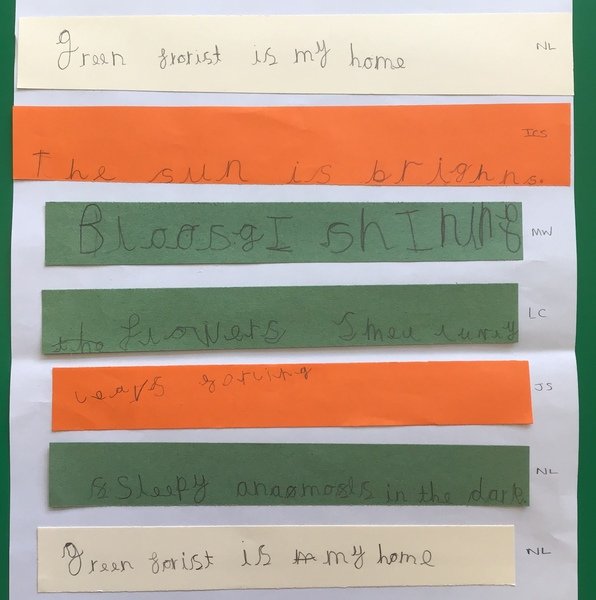 green frorist is my home NL
The sun is brighns. ICS
BloosgI shINING MW
the flowers Smell luvly LC
leavs forling JS
Sleepy anaamosls in the dark NL
green forist is my home NL